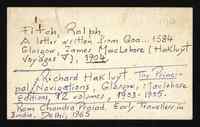 Fitch, Ralph
A letter written from Goa... 1584
Glasgow, James MacLehose (Hakluyt
Voyages V), 1904
Richard Hakluyt The Princi-
pal Navigations, Glasgow, MacLehose
Edition, 12 volumes 1903-1905.
Ram Chandra Prasad, Early Travellers in
India, Delhi, 1965